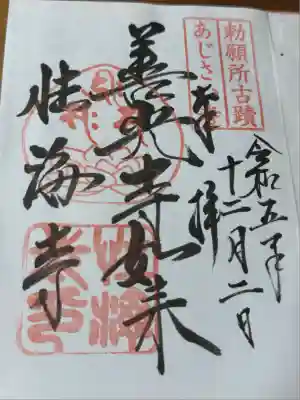 勅願所古蹟
あじさ
奉拝
令和五年
十二月二日
善光寺如来
性海寺